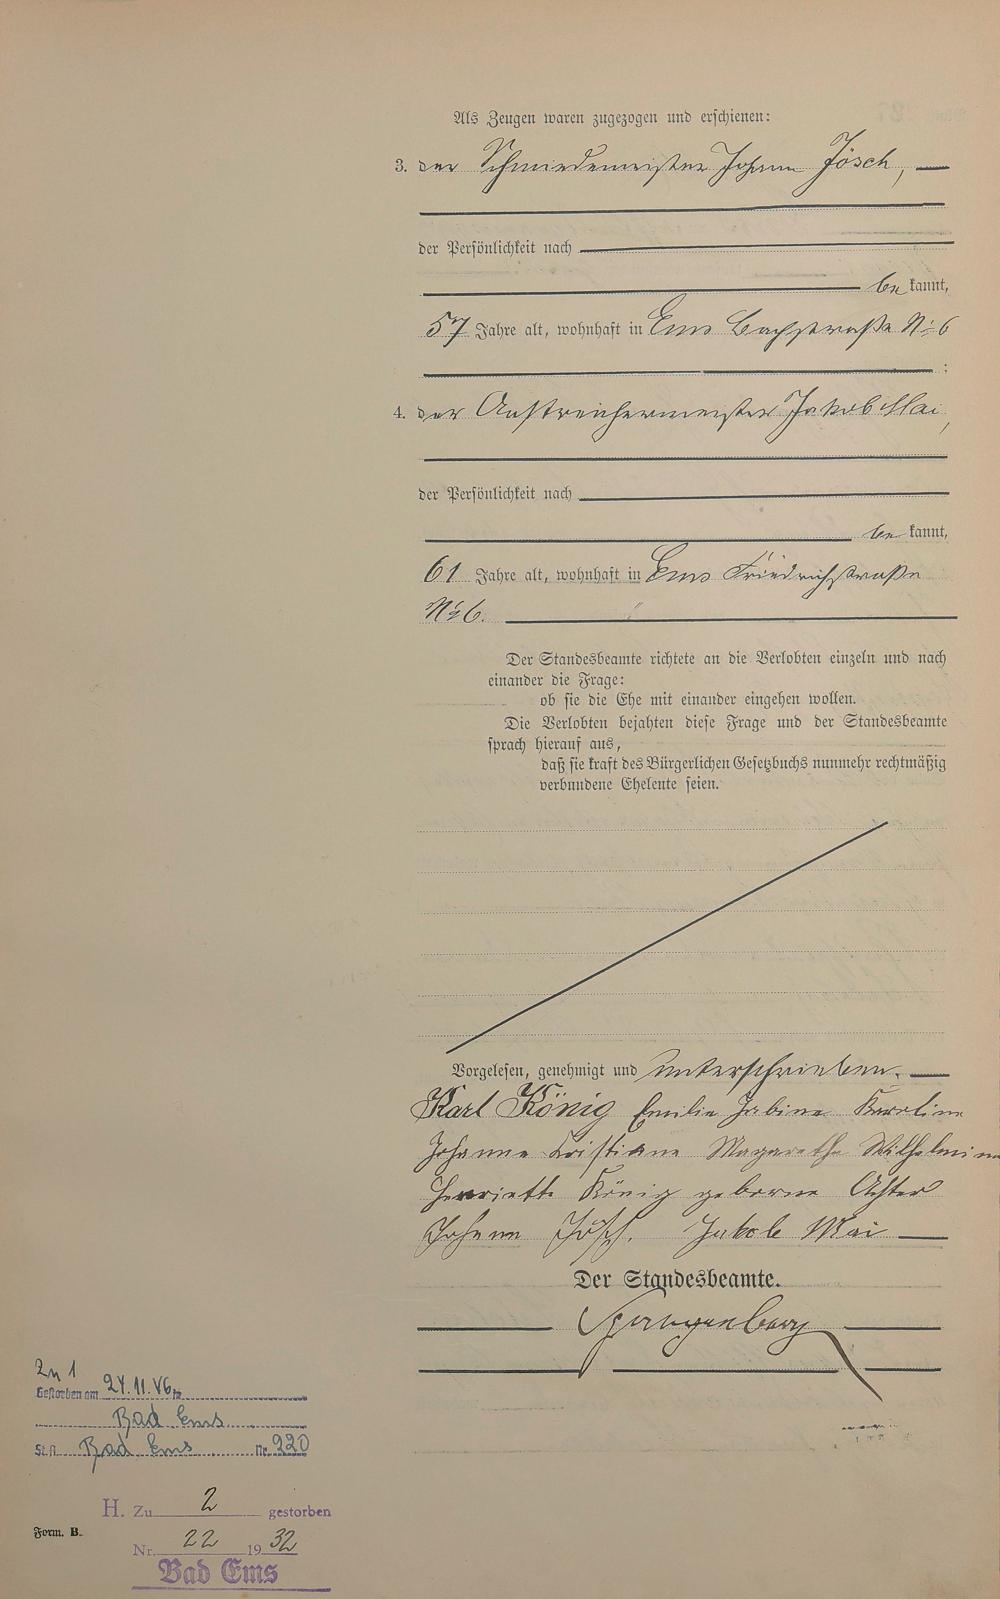 Als Zeugen waren zugezogen und erschienen:
3. der Schmiedemeister Johann Jösch,
der Persönlichkeit nach
be kannt,
57 Jahre alt, wohnhaft in Ems Bachstraße No 6
;
4. der Anstreichermeister Jakob Mai,
der Persönlichkeit nach
be kannt,
61 Jahre alt, wohnhaft in Ems Friedrichstraße
No 6.
Der Standesbeamte richtete an die Verlobten einzeln und nach
einander die Frage:
ob sie die Ehe mit einander eingehen wollen.
Die Verlobten bejahten diese Frage und der Standesbeamte
sprach hierauf aus,
daß sie kraft des Bürgerlichen Gesetzbuchs nunmehr rechtmäßig
verbundene Eheleute seien.
Vorgelesen, genehmigt und unterschrieben.
Karl König Emilie Sabine Karoline
Johanne Cristiane Magarethe Wilhelmine
Henriette König geborene Achter
Johann Jösch. Jakob Mai
Der Standesbeamte.
Spangenberg
Zu 1
Gestorben am 24.11.46 in
Bad Ems
St.A. Bad Ems Nr. 220
H. Zu 2 gestorben
Form. B.
Nr. 22 1932
Bad Ems